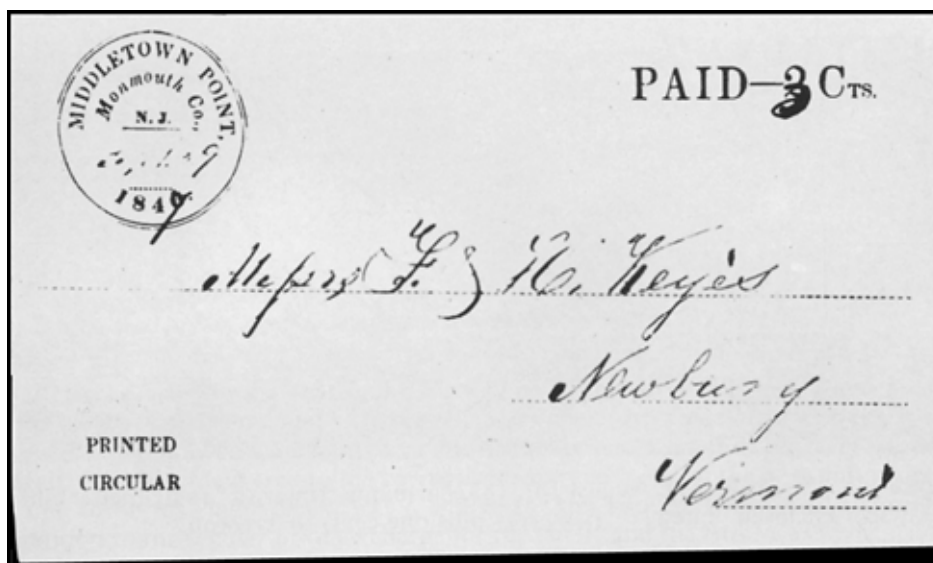 MIDDLETOWN POINT,
Monmouth Co.,
N. J.
1847
PAID—3 CTS.
Messrs F. & H. Keyes
Newbury
Vermont
PRINTED
CIRCULAR